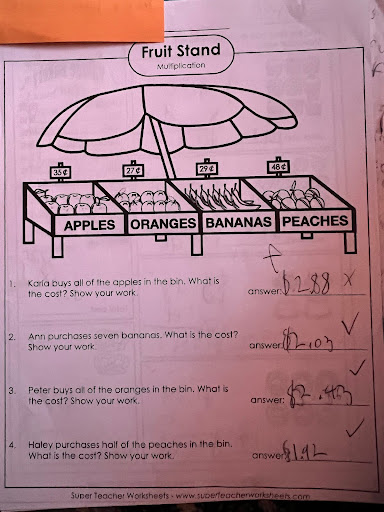 Fruit Stand
Multiplication
35¢ 27¢ 29¢ 48¢
APPLES ORANGES BANANAS PEACHES
1. Karla buys all of the apples in the bin. What is
the cost? Show your work. answer: $2.88 x
2. Ann purchases seven bananas. What is the cost?
Show your work. answer: $2.03 ✓
3. Peter buys all of the oranges in the bin. What is
the cost? Show your work. answer: $2.43 ✓
4. Haley purchases half of the peaches in the bin.
What is the cost? Show your work. answer: $1.92 ✓
Super Teacher Worksheets - www.superteacherworksheets.com